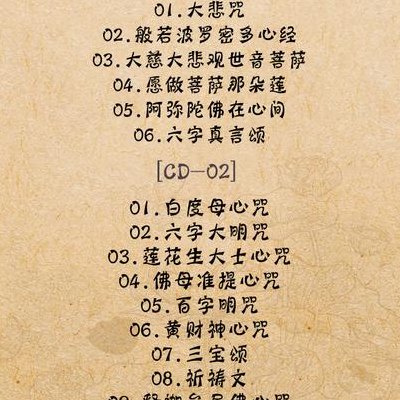 01.大悲咒
02.般若波罗密多心经
03.大慈大悲观世音菩萨
04.愿做菩萨那朵莲
05.阿弥陀佛在心间
06.六字真言颂
[CD—02]
01.白度母心咒
02.六字大明咒
03.莲花生大士心咒
04.佛母准提心咒
05.百字明咒
06.黄财神心咒
07.三宝颂
08.祈祷文